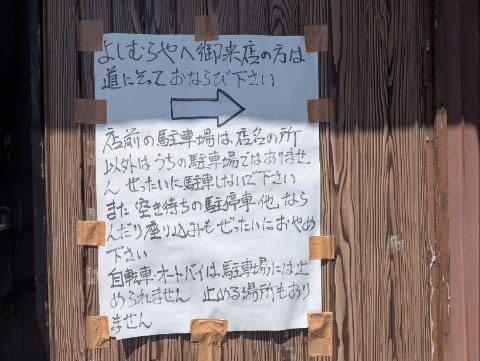 よしむらやへ御来店の方は
道にそっておならび下さい
店前の駐車場は、店名の所
以外はうちの駐車場ではありませ
ん ぜったいに駐車しないで下さい
また空き待ちの駐停車、他、なら
んだり座り込みもぜったいにおやめ
下さい
自転車・オートバイは、駐車場には止
められません 止める場所もあり
ません